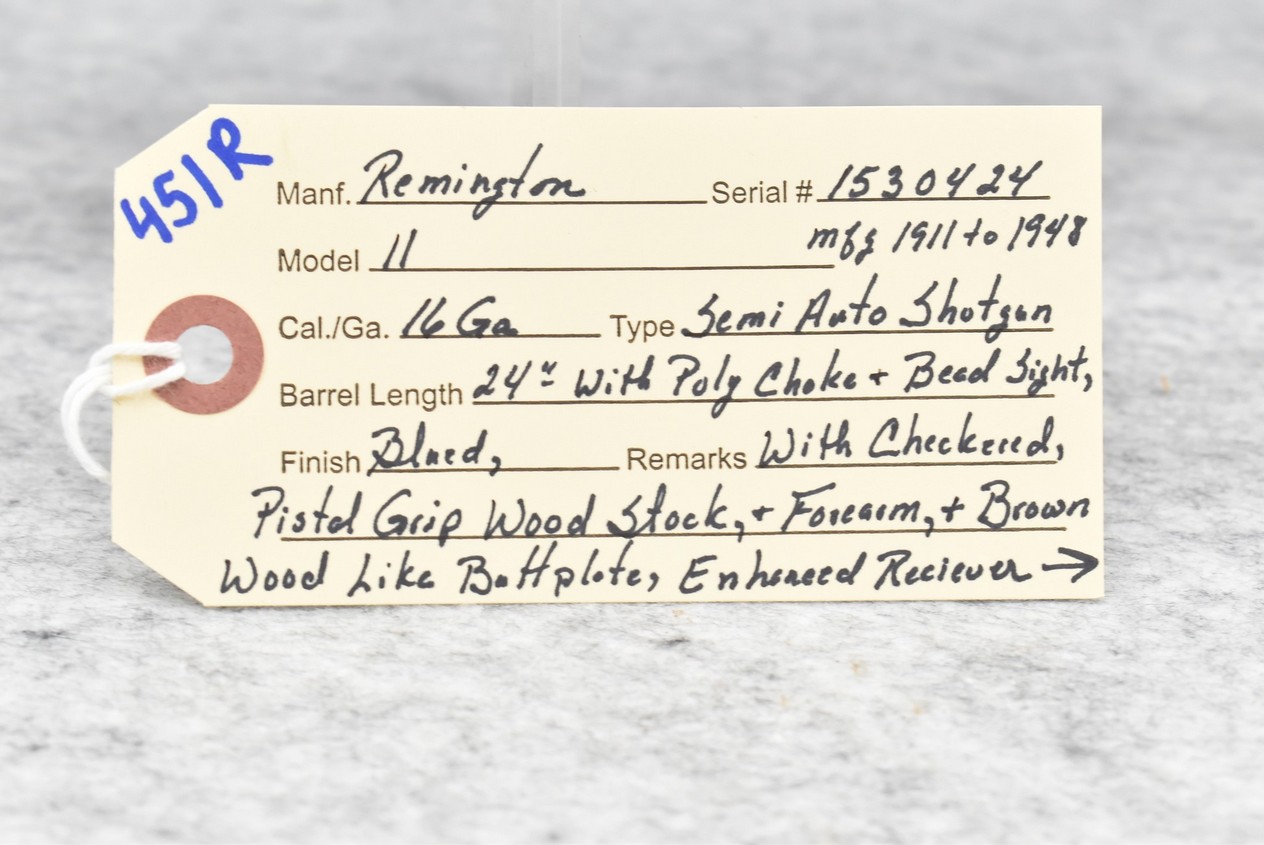 451R
Manf. Remington Serial # 1530424
mfg 1911 to 1948
Model 11
Cal./Ga. 16 Ga Type Semi Auto Shotgun
Barrel Length 24" With Poly Choke + Bead Sight,
Finish Blued, Remarks With Checkered,
Pistol Grip Wood Stock, + Forearm, + Brown
Wood Like Buttplate, Enhanced Reciever →